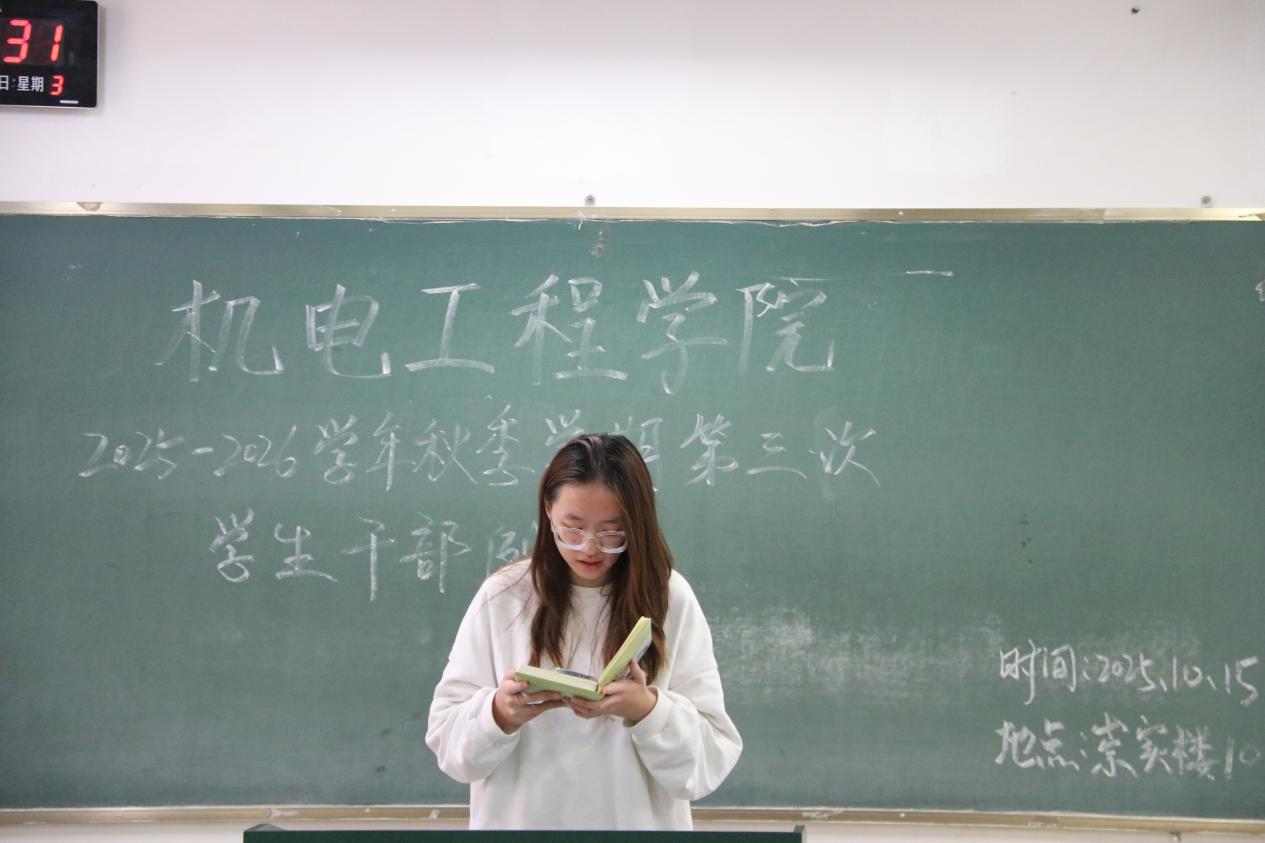 31
日 星期 3
机电工程学院
2025-2026学年秋季学期第三次
学生干部例
时间:2025.10.15
地点:崇实楼10